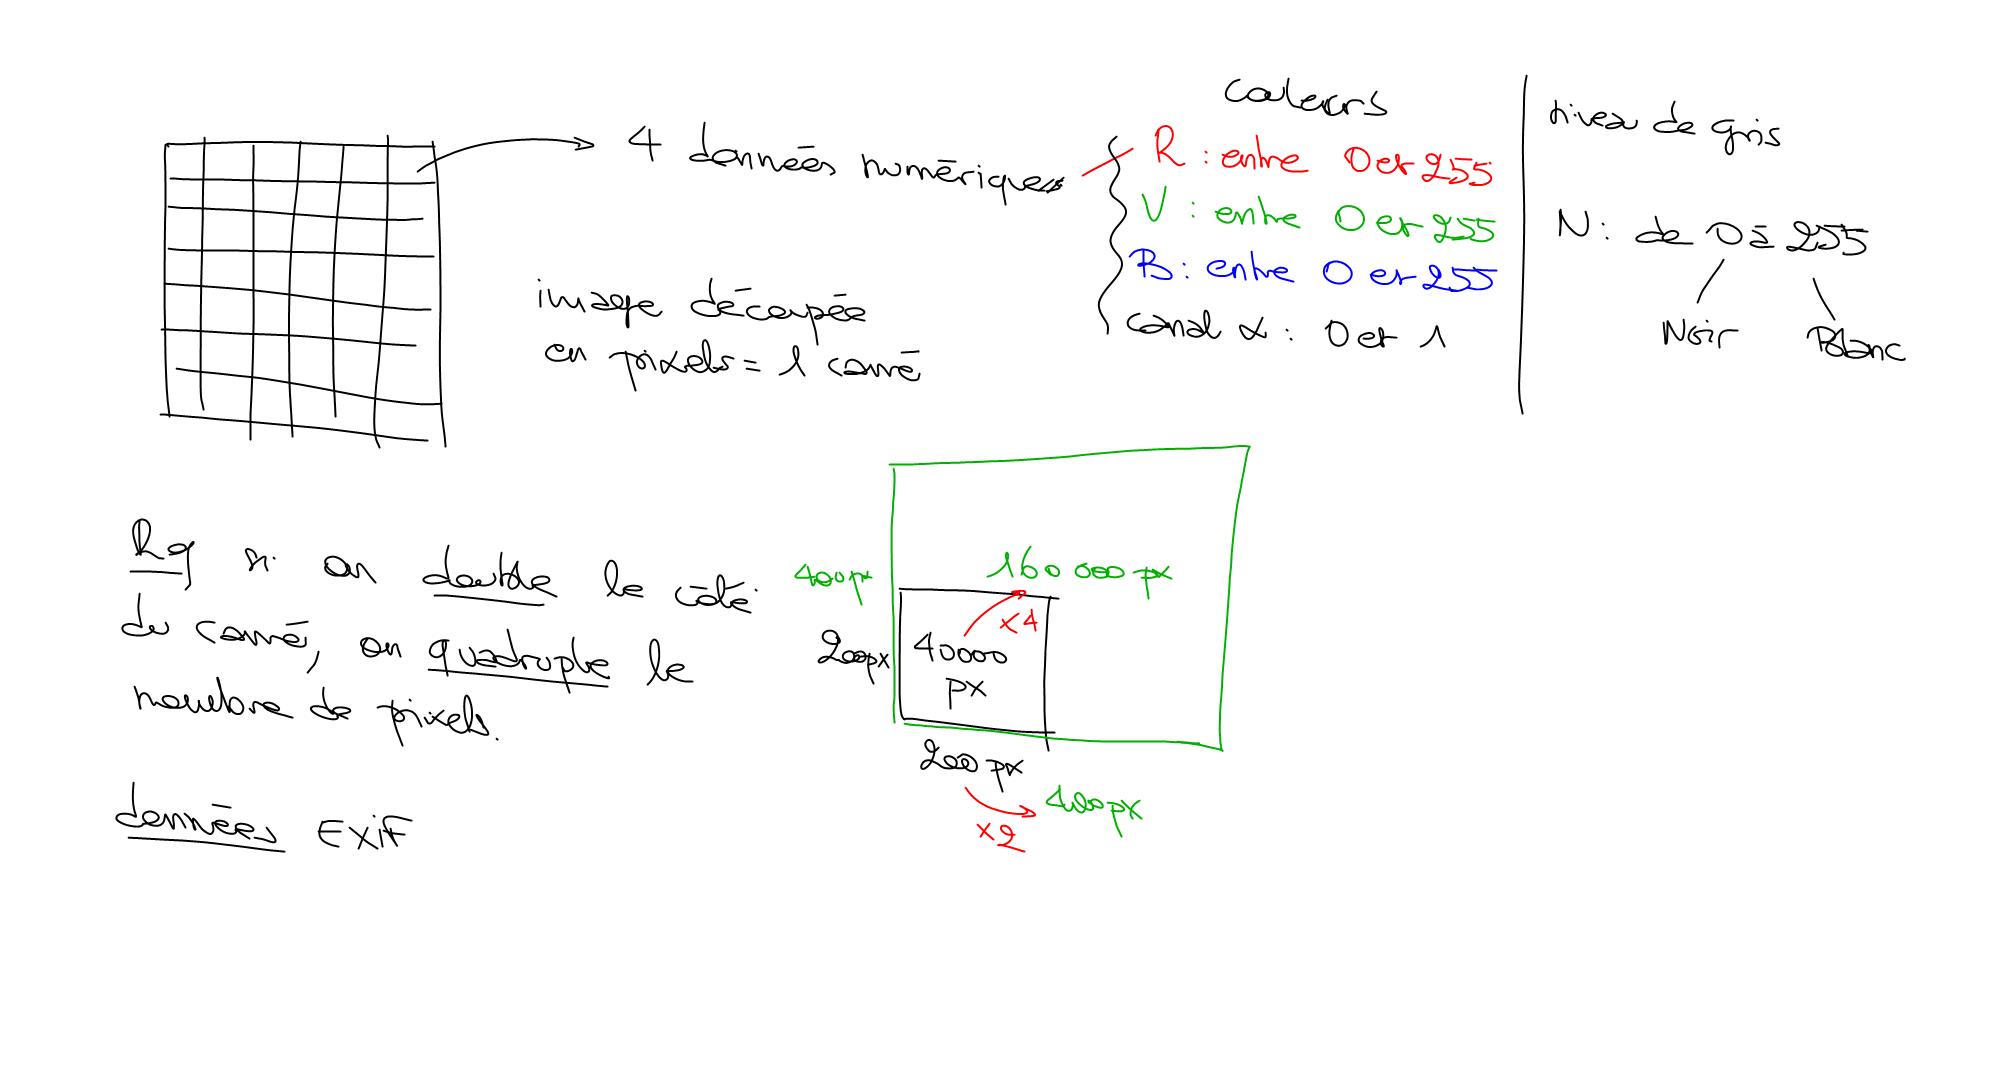 couleurs
niveau de gris
4 données numériques
R : entre 0 et 255
V : entre 0 et 255
B : entre 0 et 255
canal α : 0 et 1
N : de 0 à 255
Noir
Blanc
image découpée
en pixels = 1 carré
Rq si on double le côté
du carré, on quadruple le
nombre de pixels.
400px
160 000 px
x4
200px
40000
px
200 px
400px
x2
données EXIF